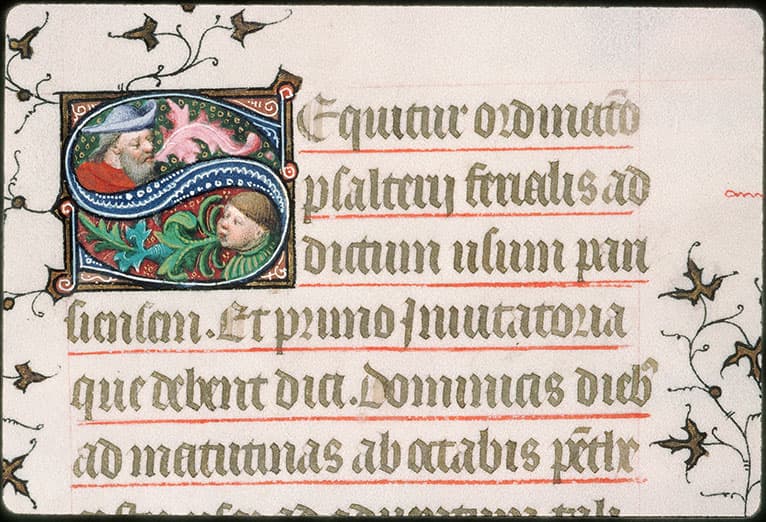 Sequitur ordinatō
psalterij ferialis ad
dictum usum pari
siensem. Et primo Inuitatoria
que debent dici. Dominicis dieb9
ad matutinas ab octabis pēthe